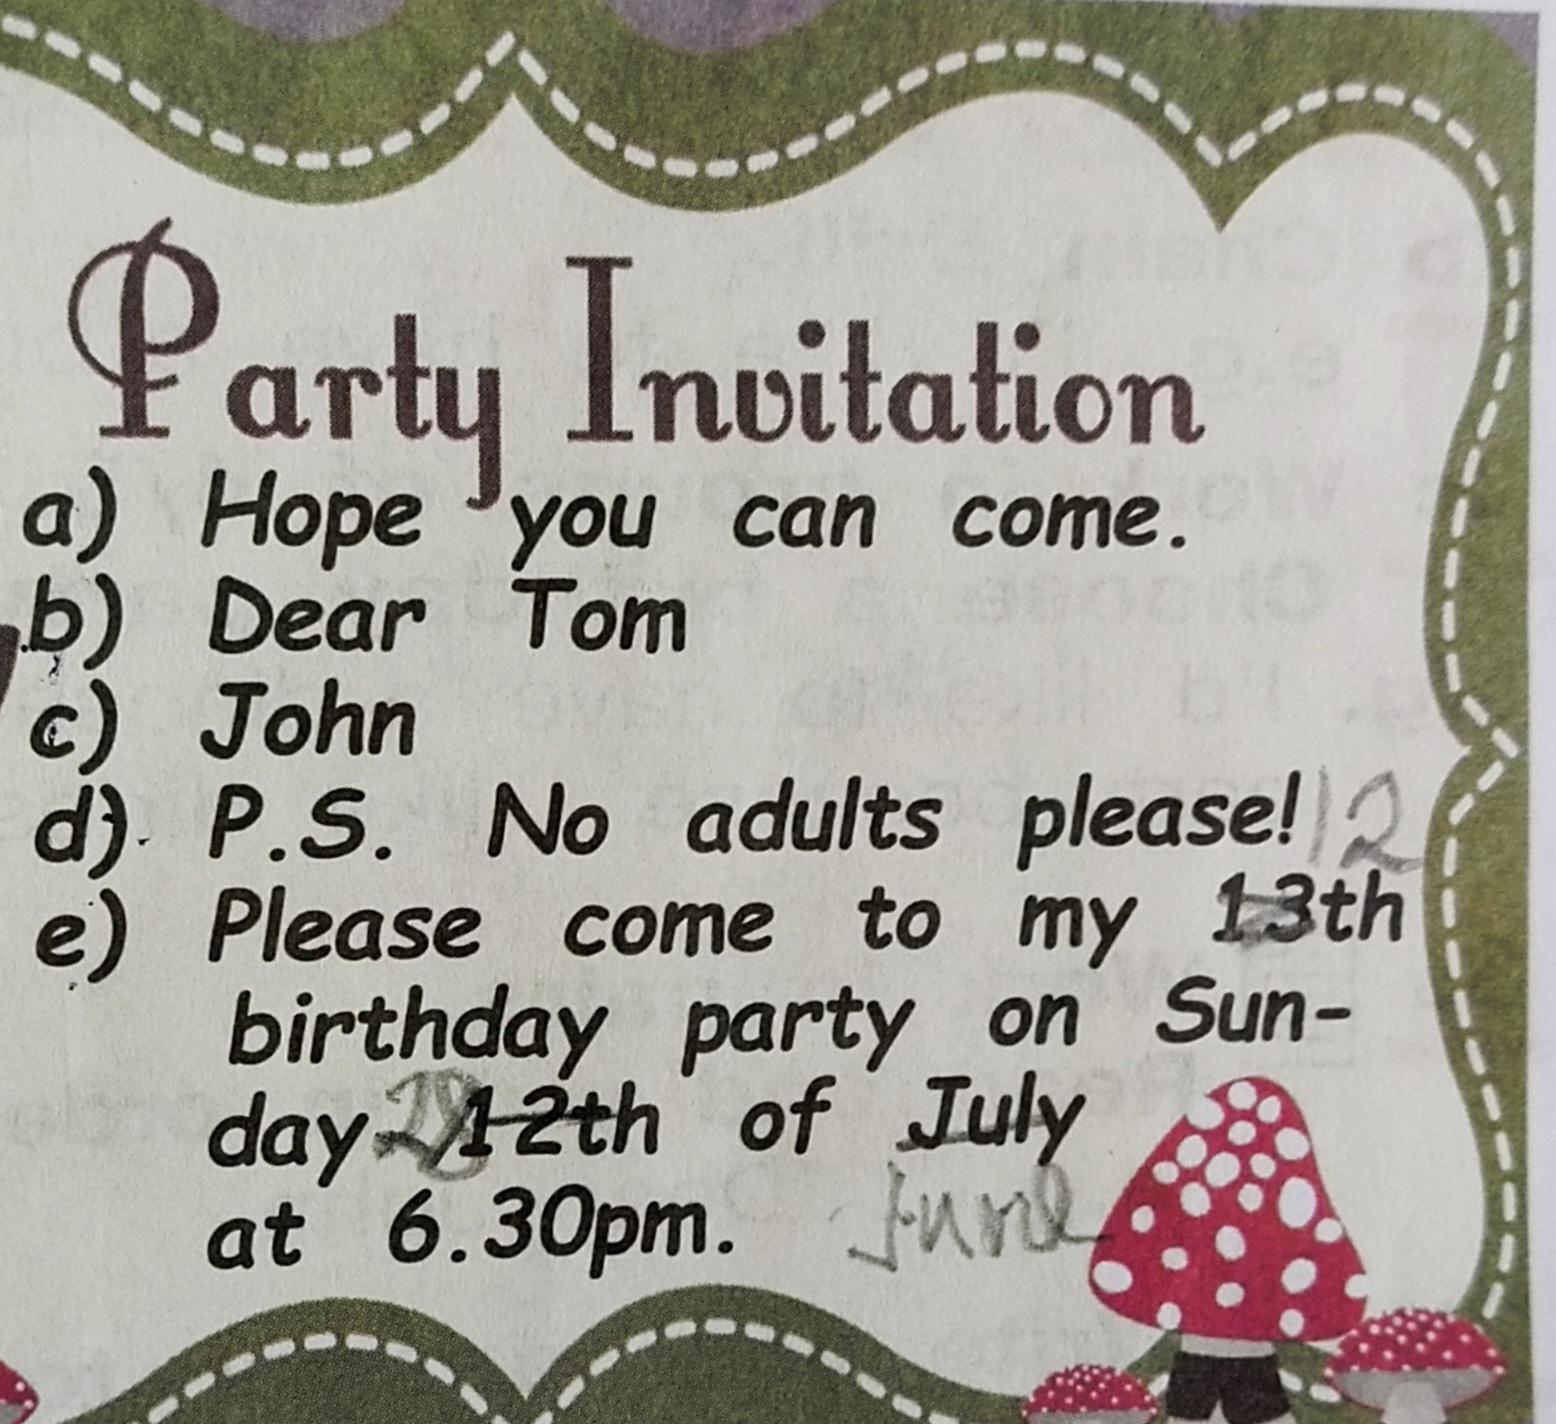 Party Invitation
a) Hope you can come.
b) Dear Tom
c) John
d) P.S. No adults please! 12
e) Please come to my 13th
birthday party on Sun-
day 28 12th of July
at 6.30pm. June